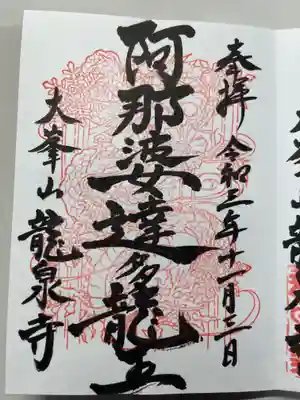 奉拝 令和三年十一月三日
阿那婆達多龍王
大峯山 龍泉寺